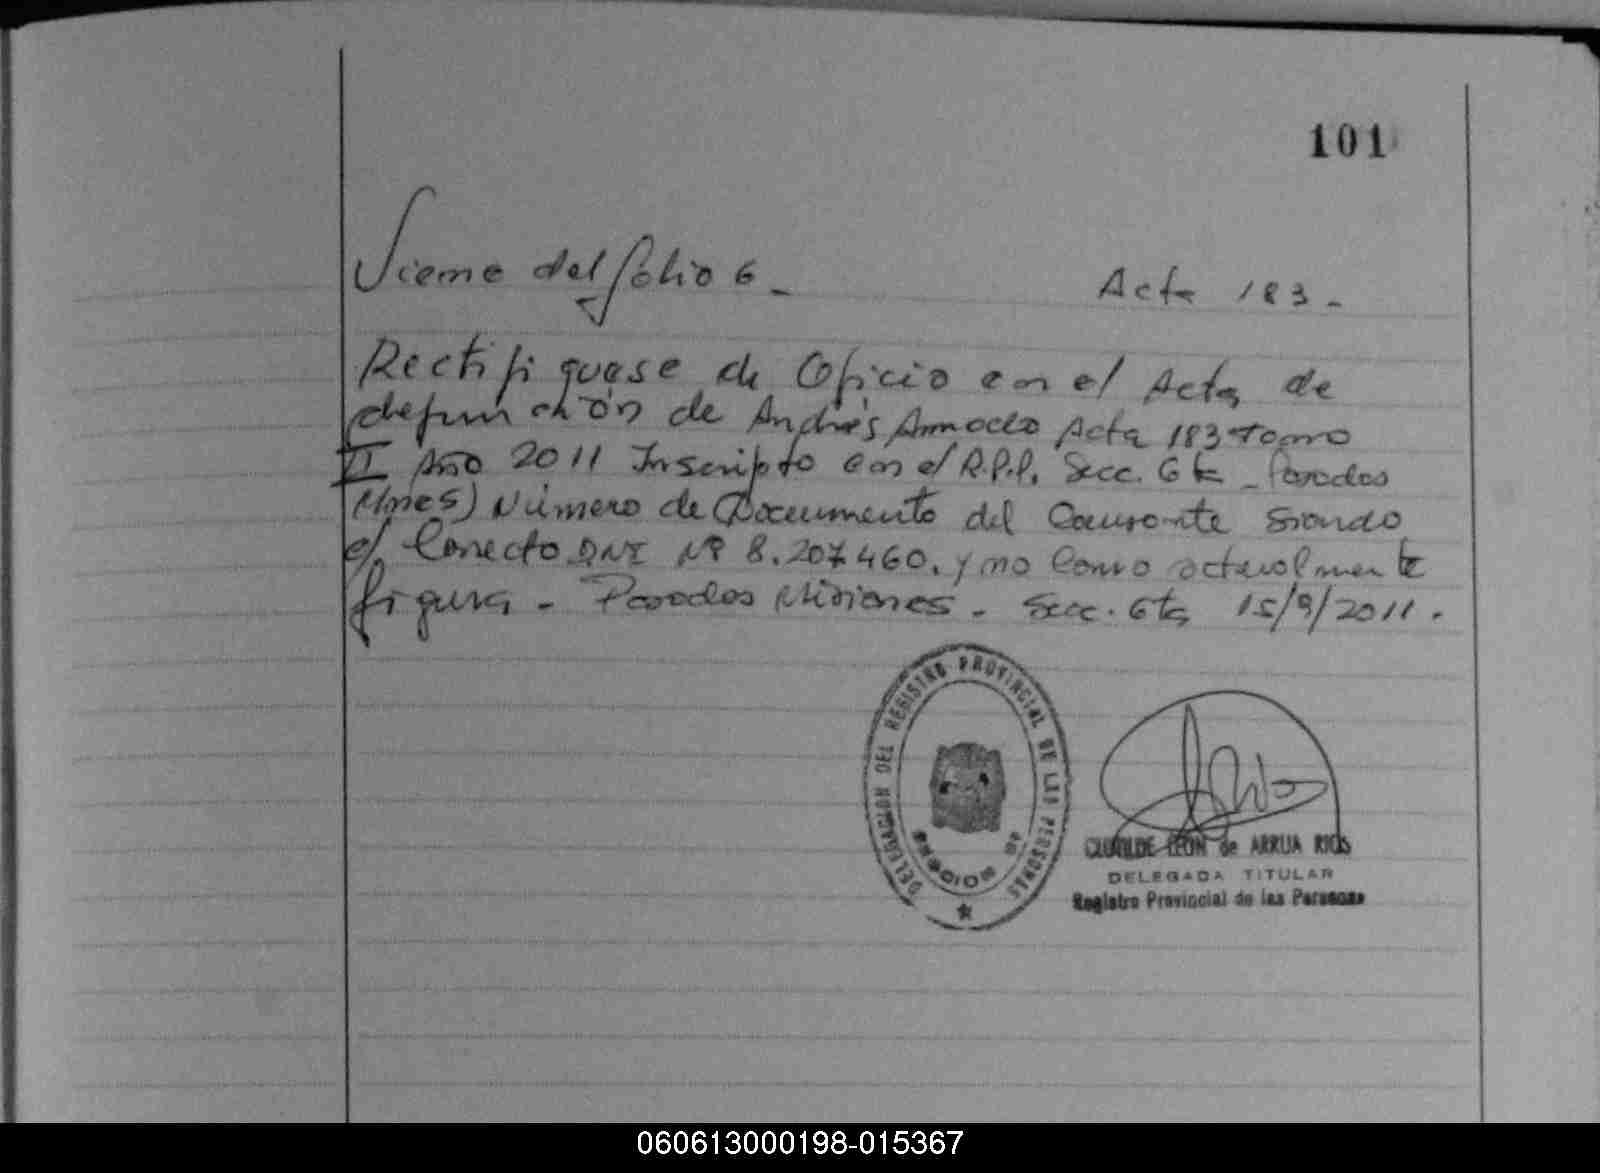 101
Viene del folio 6_
Acta 183_
Rectifiquese de Oficio en el Acta de
defunción de Andrés Acta 183 tomo
II Año 2011 Inscripto en el R.P.P. Secc. 6ta_ Posadas
(Mnes) Número de Documento del Causante siendo
el Correcto DNI Nº 8.207460. y no como actualmente
figura_ Posadas Misiones_ Secc. 6ta 15/9/2011.
DELEGACION DEL REGISTRO PROVINCIAL DE LAS PERSONAS
CLOTILDE LEON de ARRUA RIOS
DELEGADA TITULAR
Registro Provincial de las Personas
060613000198-015367